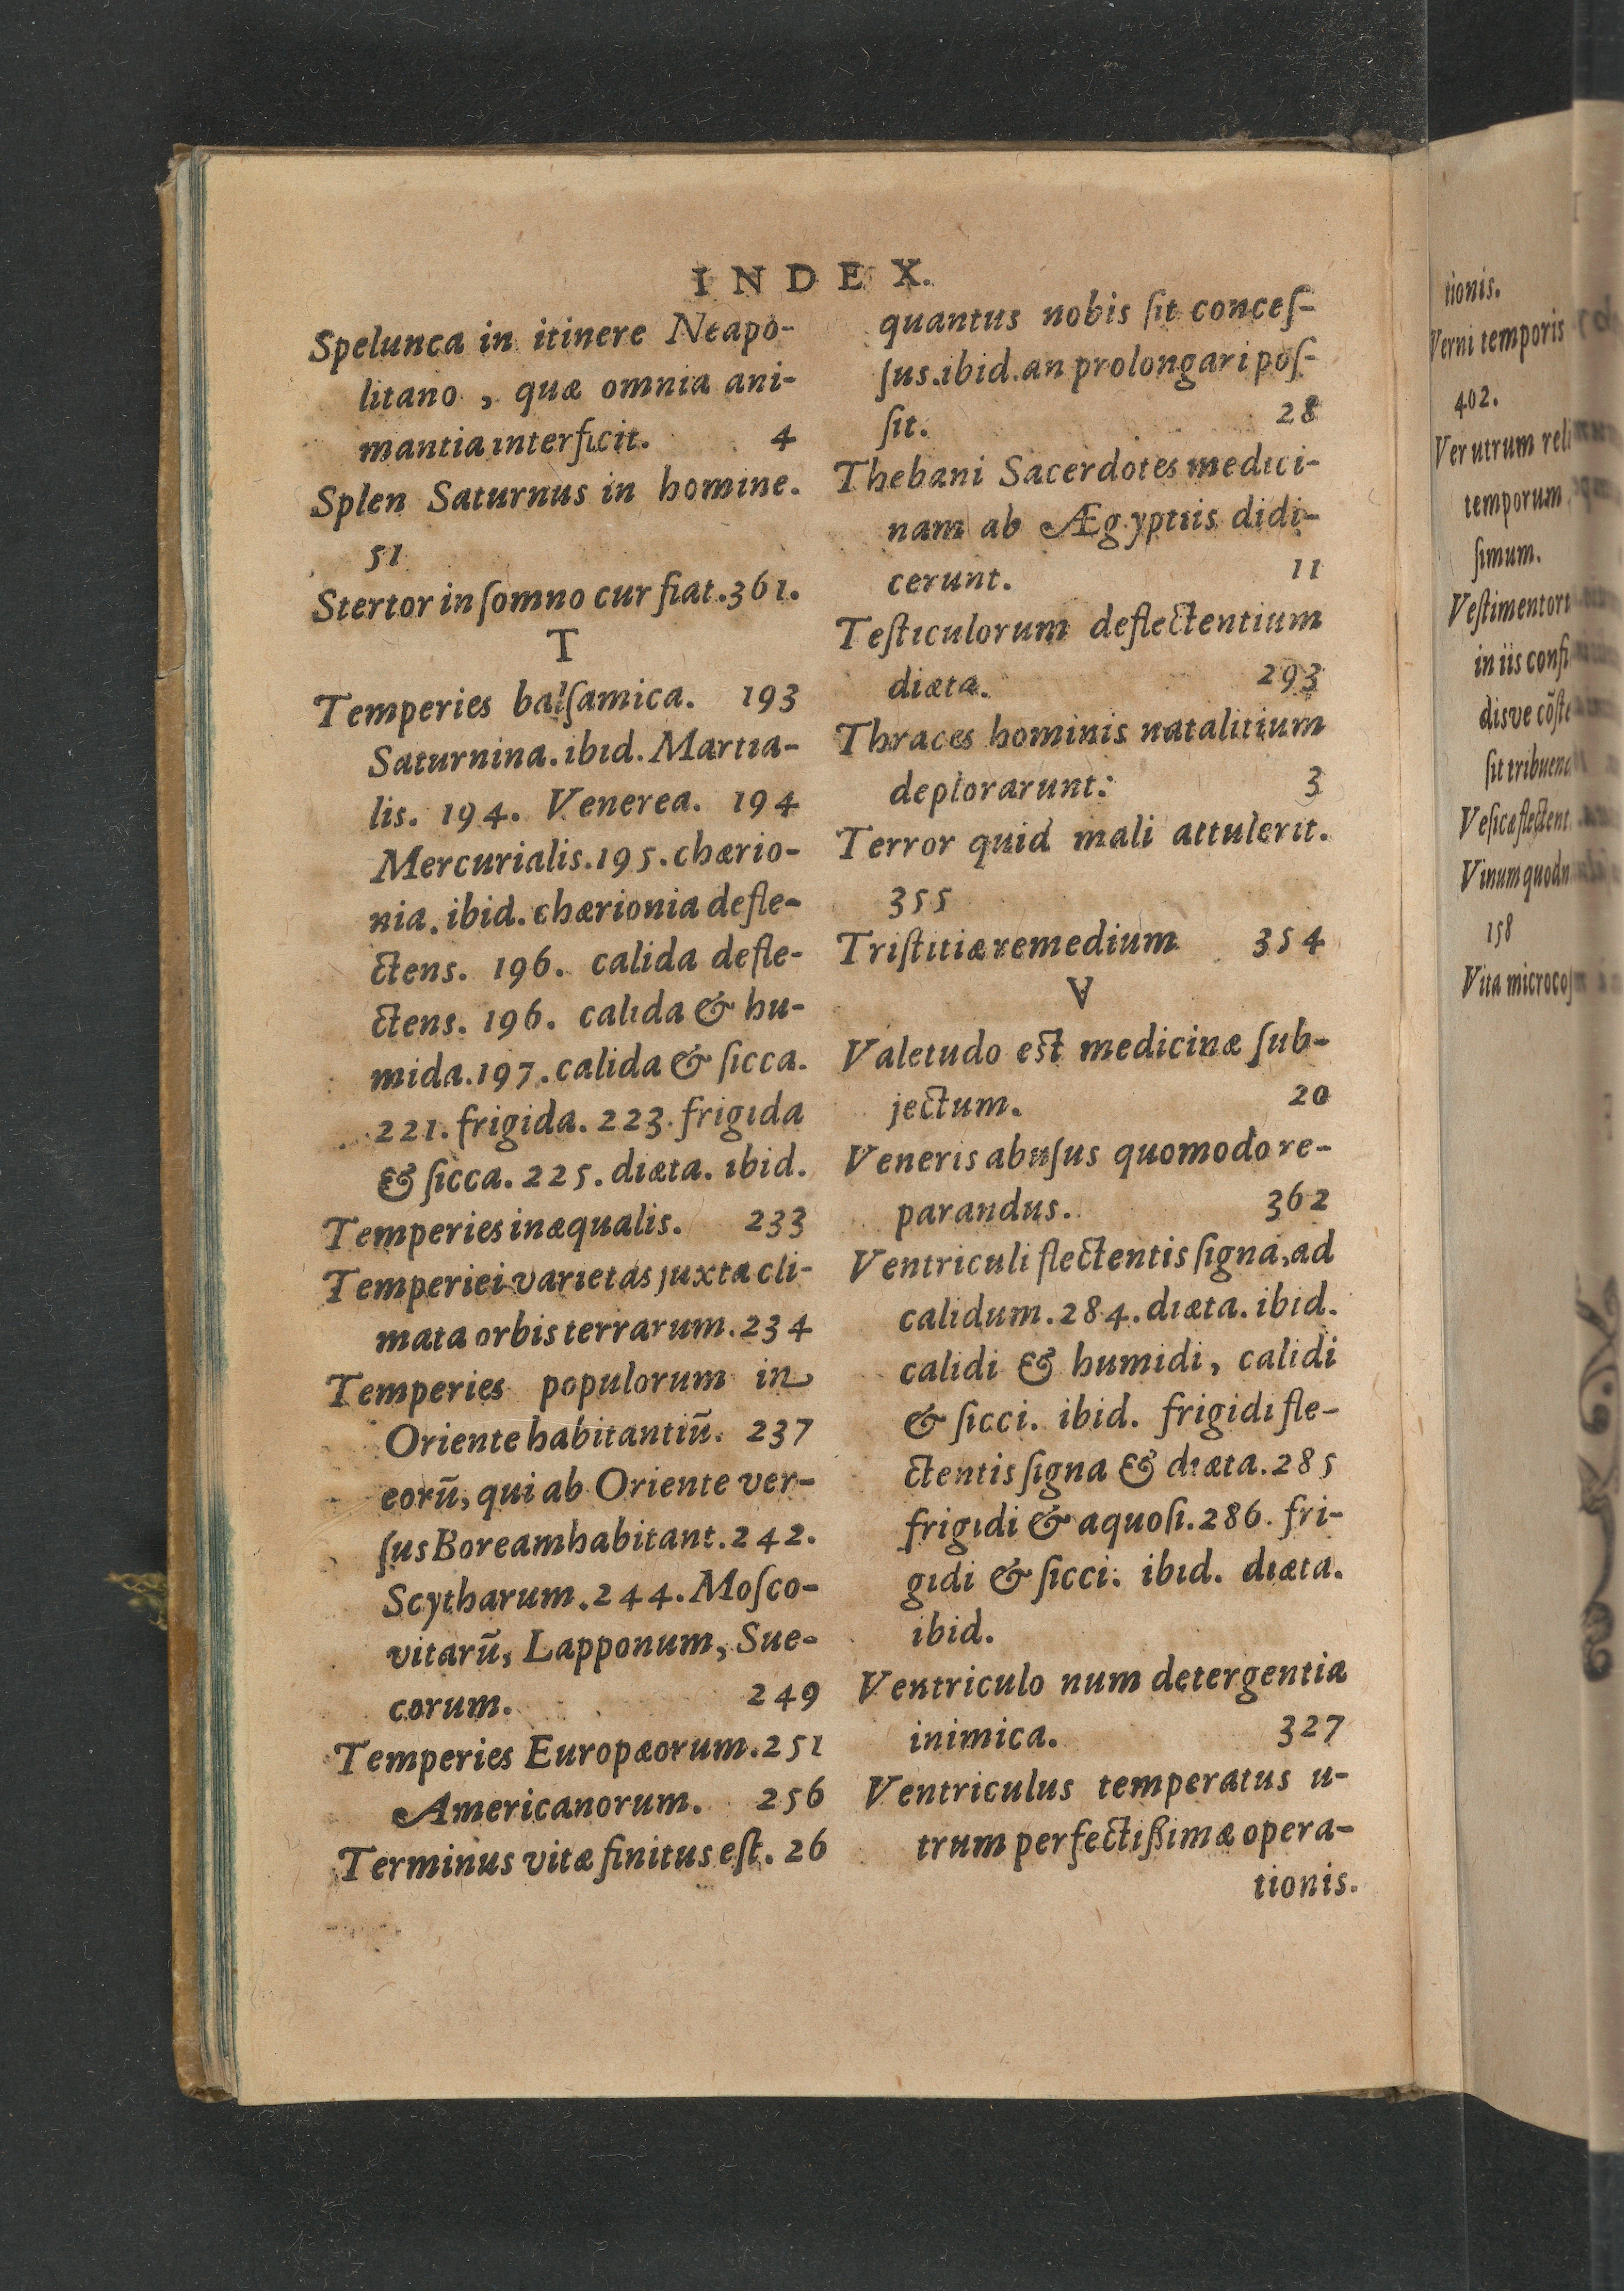 INDEX.
Spelunca in itinere Neapo-
litano, quæ omnia ani-
mantia interficit. 4
Splen Saturnus in homine.
51
Stertor in ſomno cur fiat. 361.
T
Temperies balſamica. 193
Saturnina. ibid. Martia-
lis. 194. Venerea. 194
Mercurialis. 195. chærio-
nia. ibid. chærionia defle-
ctens. 196. calida defle-
ctens. 196. calida & hu-
mida. 197. calida & ſicca.
221. frigida. 223. frigida
& ſicca. 225. diæta. ibid.
Temperies inæqualis. 233
Temperiei varietas juxta cli-
mata orbis terrarum. 234
Temperies populorum in
Oriente habitantiū. 237
eorū, qui ab Oriente ver-
ſus Boream habitant. 242.
Scytharum. 244. Moſco-
vitarū, Lapponum, Sue-
corum. 249
Temperies Europæorum. 251
Americanorum. 256
Terminus vitæ finitus eſt. 26
quantus nobis ſit conceſ-
ſus. ibid. an prolongari poſ-
ſit. 28
Thebani Sacerdotes medici-
nam ab Ægyptiis didi-
cerunt. 11
Teſticulorum deflectentium
diæta. 293
Thraces hominis natalitium
deplorarunt: 3
Terror quid mali attulerit.
355
Triſtitiæ remedium 354
V
Valetudo est medicinæ ſub-
jectum. 20
Veneris abuſus quomodo re-
parandus. 362
Ventriculi flectentis ſigna, ad
calidum. 284. diæta. ibid.
calidi & humidi, calidi
& ſicci. ibid. frigidi fle-
ctentis ſigna & diæta. 285
frigidi & aquoſi. 286. fri-
gidi & ſicci. ibid. diæta.
ibid.
Ventriculo num detergentia
inimica. 327
Ventriculus temperatus u-
trum perfectißimæ opera-
tionis.
tionis.
Verni temporis
402.
Ver utrum reli
temporum
ſimum.
Veſtimentor
in iis
disve
ſit
Veſicæ flectent
Vinum
158
Vita microcoſ